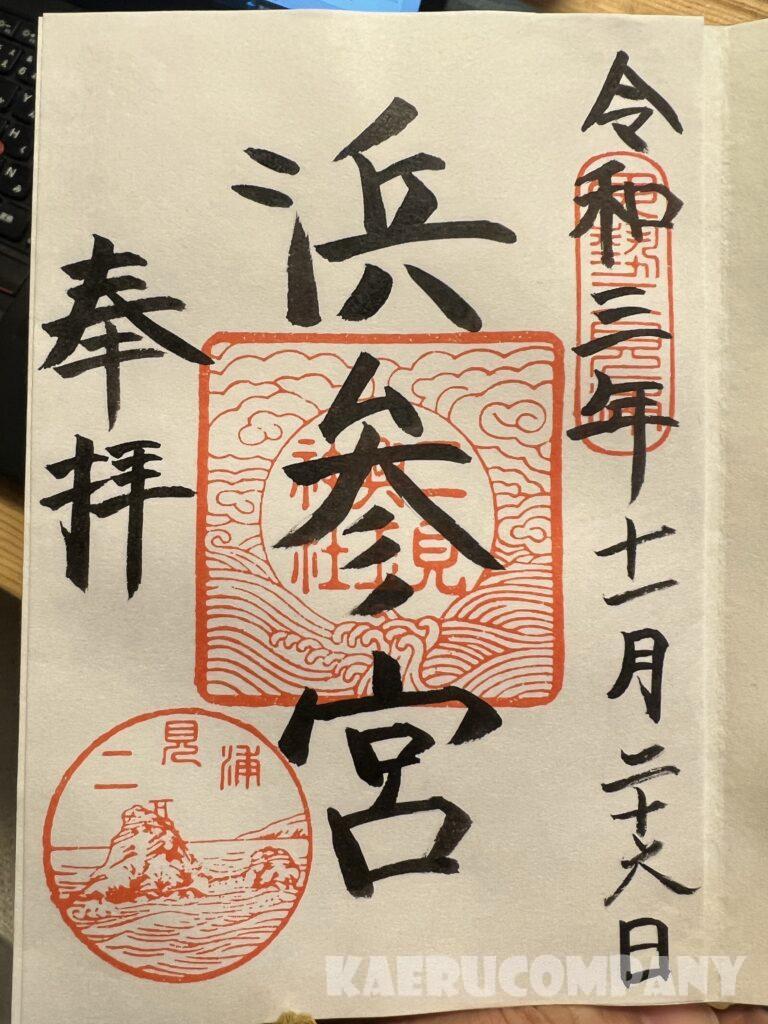 令和三年十一月二十六日
浜参宮
二見
興玉
神社
奉拝
二見浦
KAERUCOMPANY